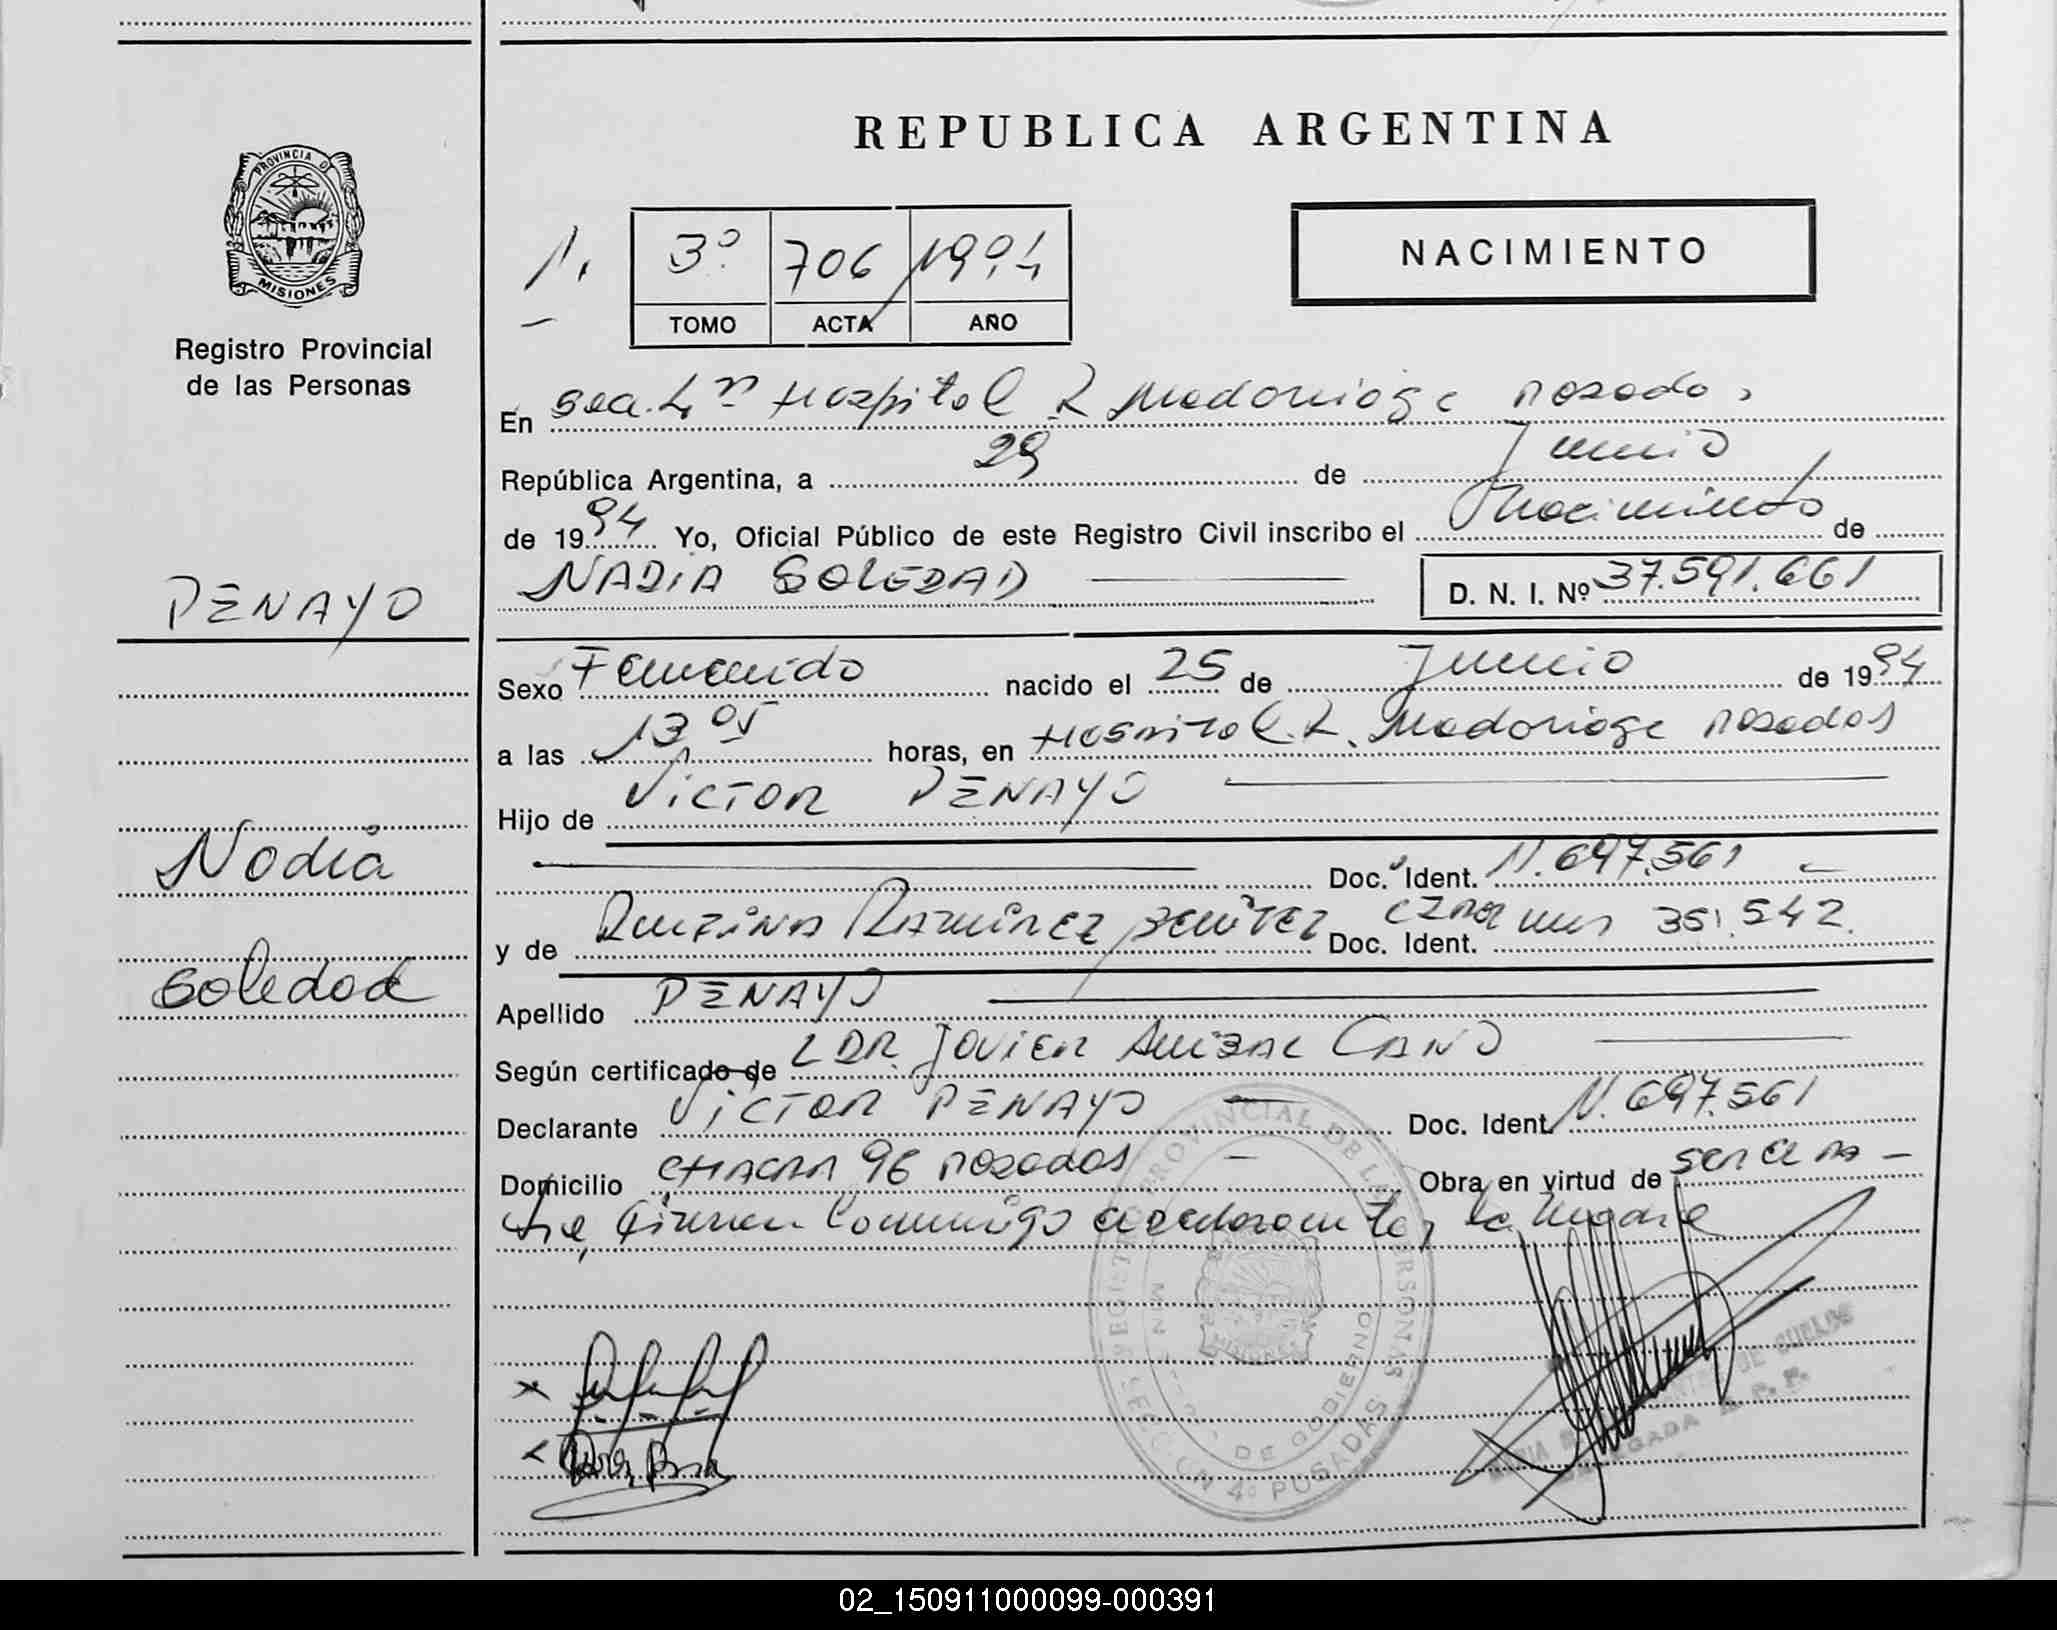 REPUBLICA ARGENTINA
PROVINCIA DE
MISIONES
Registro Provincial
de las Personas
1.
3º 706 1994
TOMO ACTA AÑO
NACIMIENTO
En Sec. 4ª Hospital R Madariaga Posadas
República Argentina, a 29 de Junio
de 1994 Yo, Oficial Público de este Registro Civil inscribo el Nacimiento de
NADIA SOLEDAD
D. N. I. Nº 37.591.661
PENAYO
Sexo Femenido nacido el 25 de Junio de 1994
a las 13 05 horas, en Hospital R. Madariaga Posadas
Hijo de VICTOR PENAYO
Doc. Ident. N. 697.561
y de RAMIREZ BENITEZ Doc. Ident. 351.542
Nadia
Soledad
Apellido PENAYO
Según certificado de DR. JAVIER ANIBAL CANO
Declarante VICTOR PENAYO Doc. Ident. N. 697.561
Domicilio CHACRA 96 Posadas Obra en virtud de ser el pa-
dre, firman conmigo el declarante y la madre
REGISTRO PROVINCIAL DE LAS PERSONAS
DE GOBIERNO
SECCION 4º POSADAS
DELEGADA R. P. P.
02_150911000099-000391